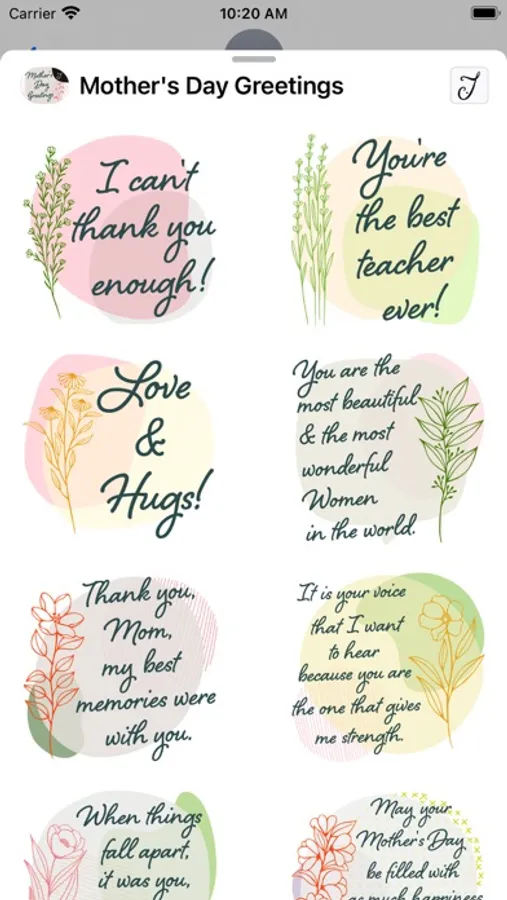 Carrier 10:20 AM
Mother's Day Greetings
Mother's Day Greetings
I can't
thank you
enough!
You're
the best
teacher
ever!
Love
&
Hugs!
You are the
most beautiful
& the most
wonderful
Women
in the world.
Thank you,
Mom,
my best
memories were
with you.
It is your voice
that I want
to hear
because you are
the one that gives
me strength.
When things
fall apart,
it was you,
May your
Mother's Day
be filled with
as much happiness